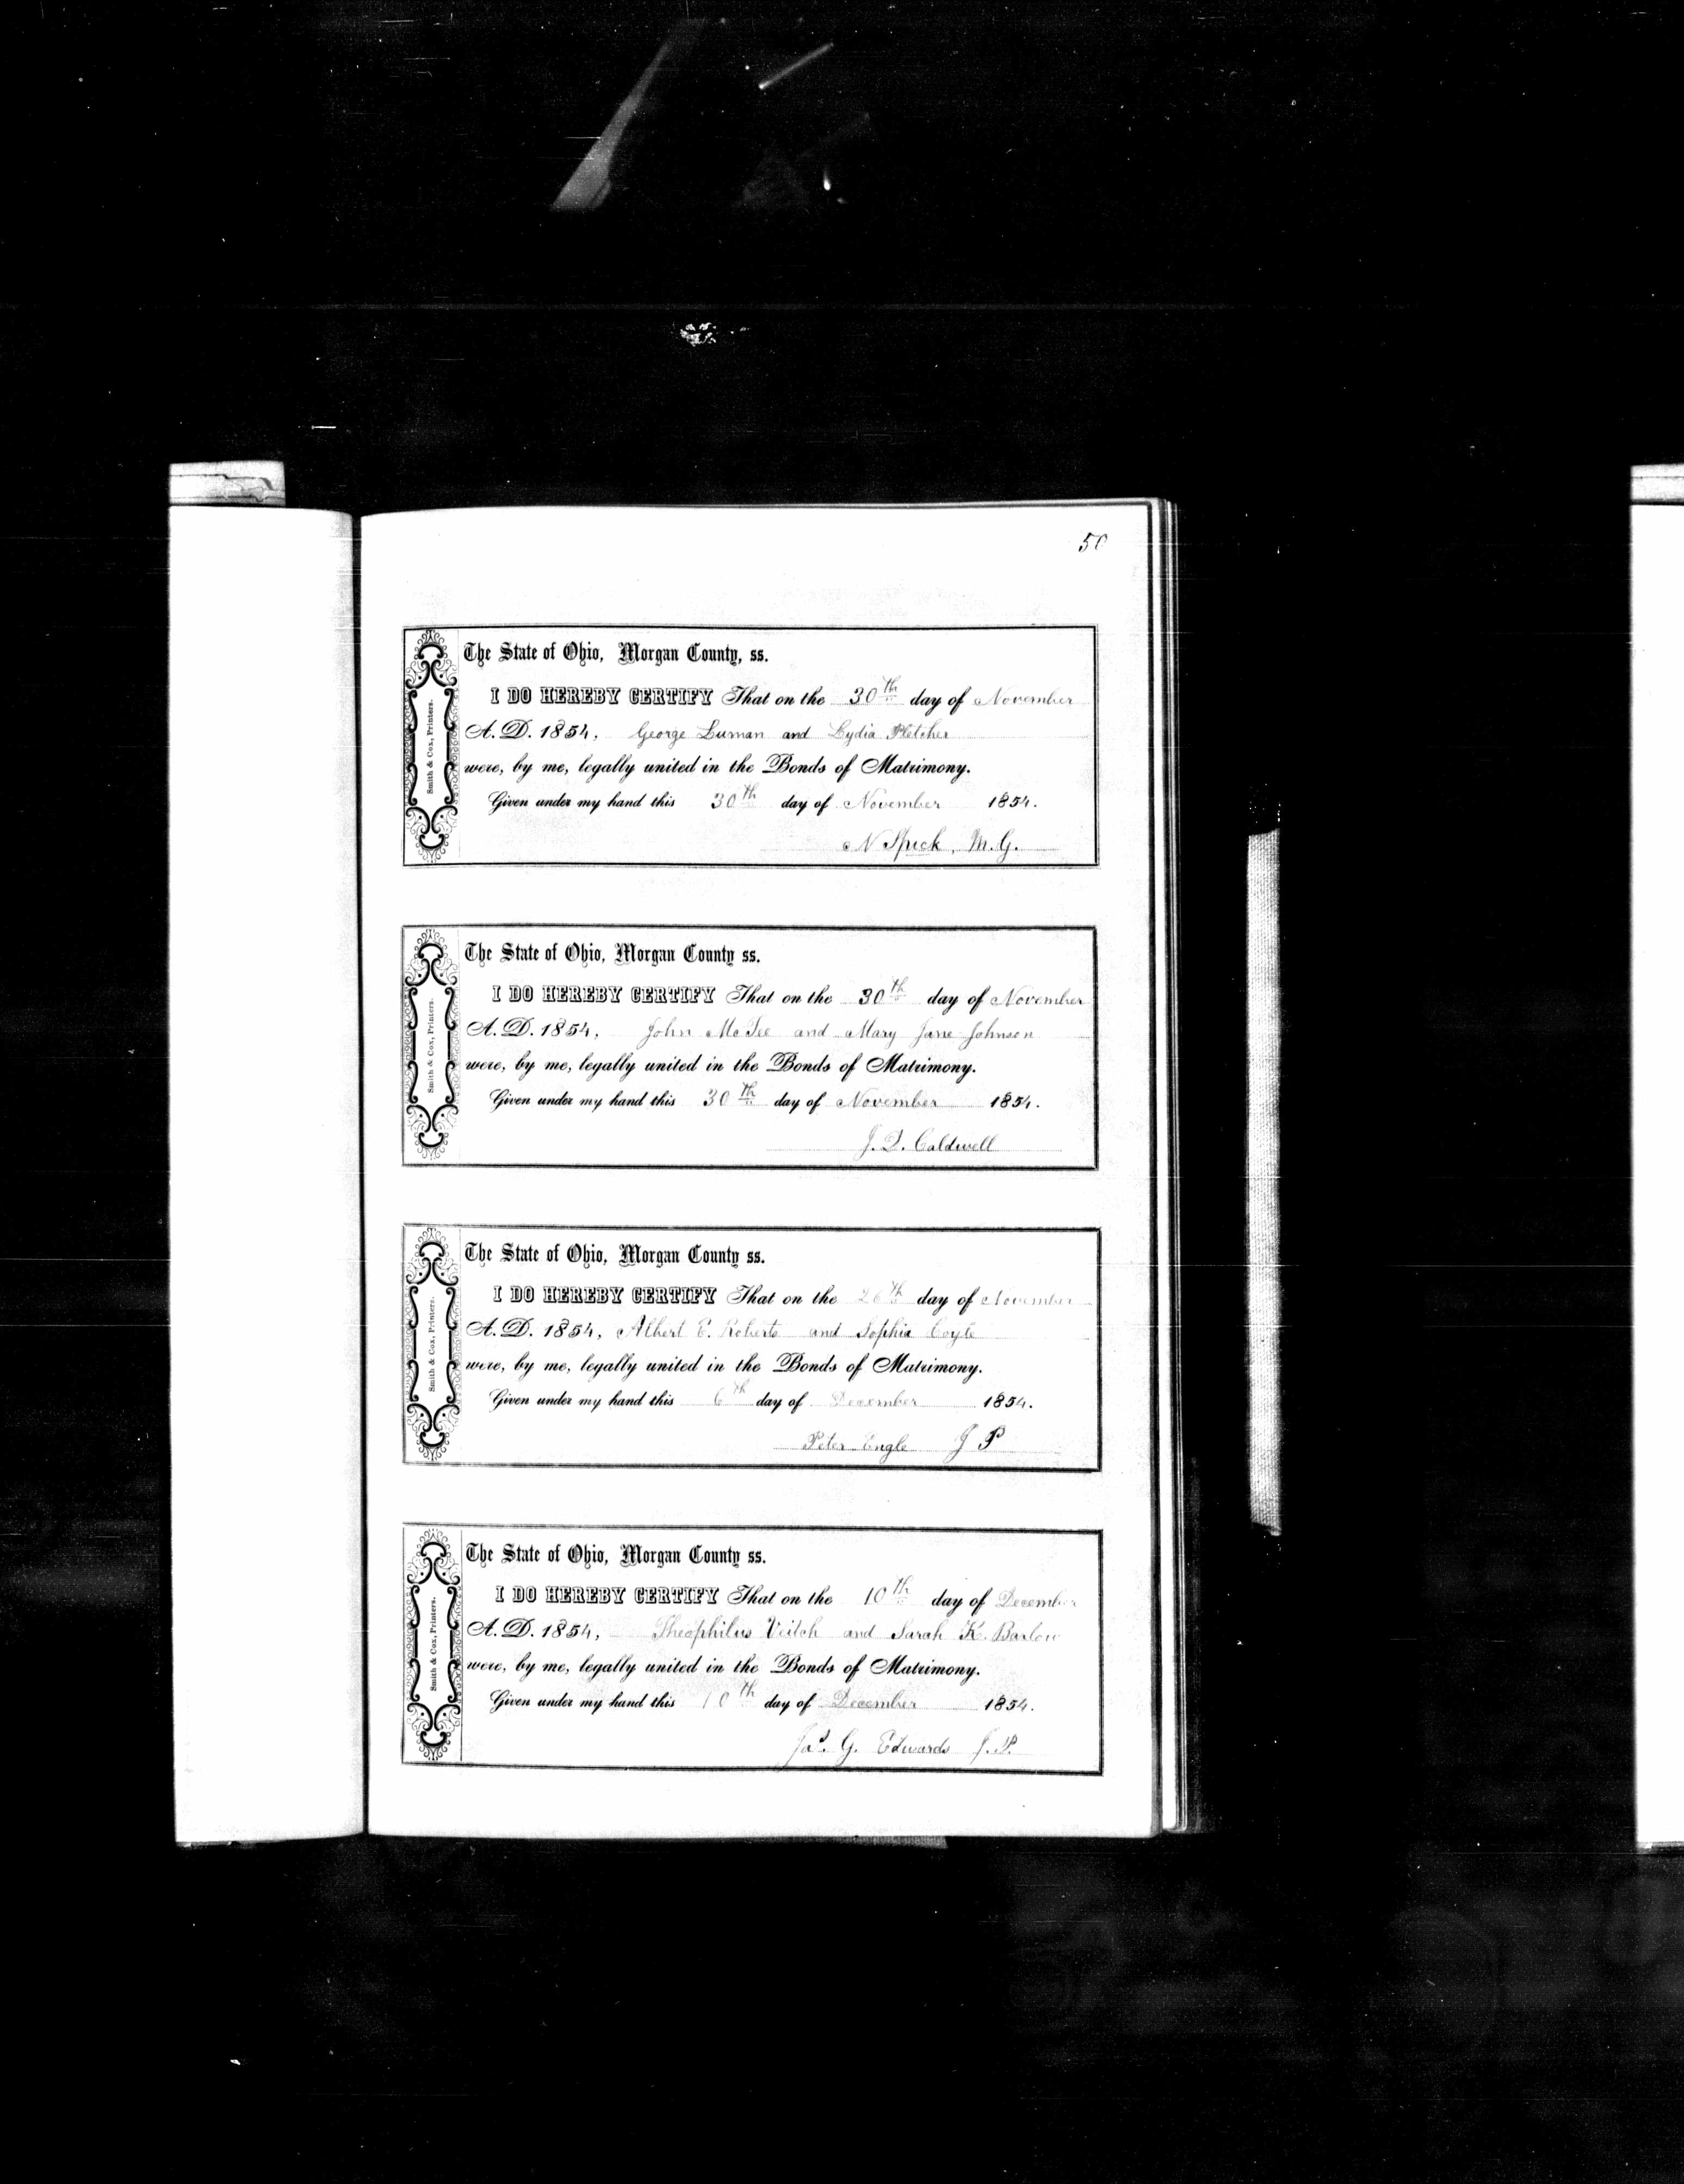 50
The State of Ohio, Morgan County, ss.
I DO HEREBY CERTIFY That on the 30th day of November
A. D. 1854, George Luman and Lydia Fletcher
were, by me, legally united in the Bonds of Matrimony.
Given under my hand this 30th day of November 1854.
N Speck, M.G.
Smith & Cox, Printers.
The State of Ohio, Morgan County ss.
I DO HEREBY CERTIFY That on the 30th day of November
A. D. 1854, John and Mary Jane Johnson
were, by me, legally united in the Bonds of Matrimony.
Given under my hand this 30th day of November 1854.
Caldwell
Smith & Cox, Printers.
The State of Ohio, Morgan County ss.
I DO HEREBY CERTIFY That on the 26th day of November
A. D. 1854, Albert E. Roberts and Sophia Coyle
were, by me, legally united in the Bonds of Matrimony.
Given under my hand this 6th day of December 1854.
Peter Engle J P
Smith & Cox, Printers.
The State of Ohio, Morgan County ss.
I DO HEREBY CERTIFY That on the 10th day of December
A. D. 1854, Theophilus Veitch and Sarah K. Barlow
were, by me, legally united in the Bonds of Matrimony.
Given under my hand this 10th day of December 1854.
Jas. G. Edwards J.P.
Smith & Cox, Printers.